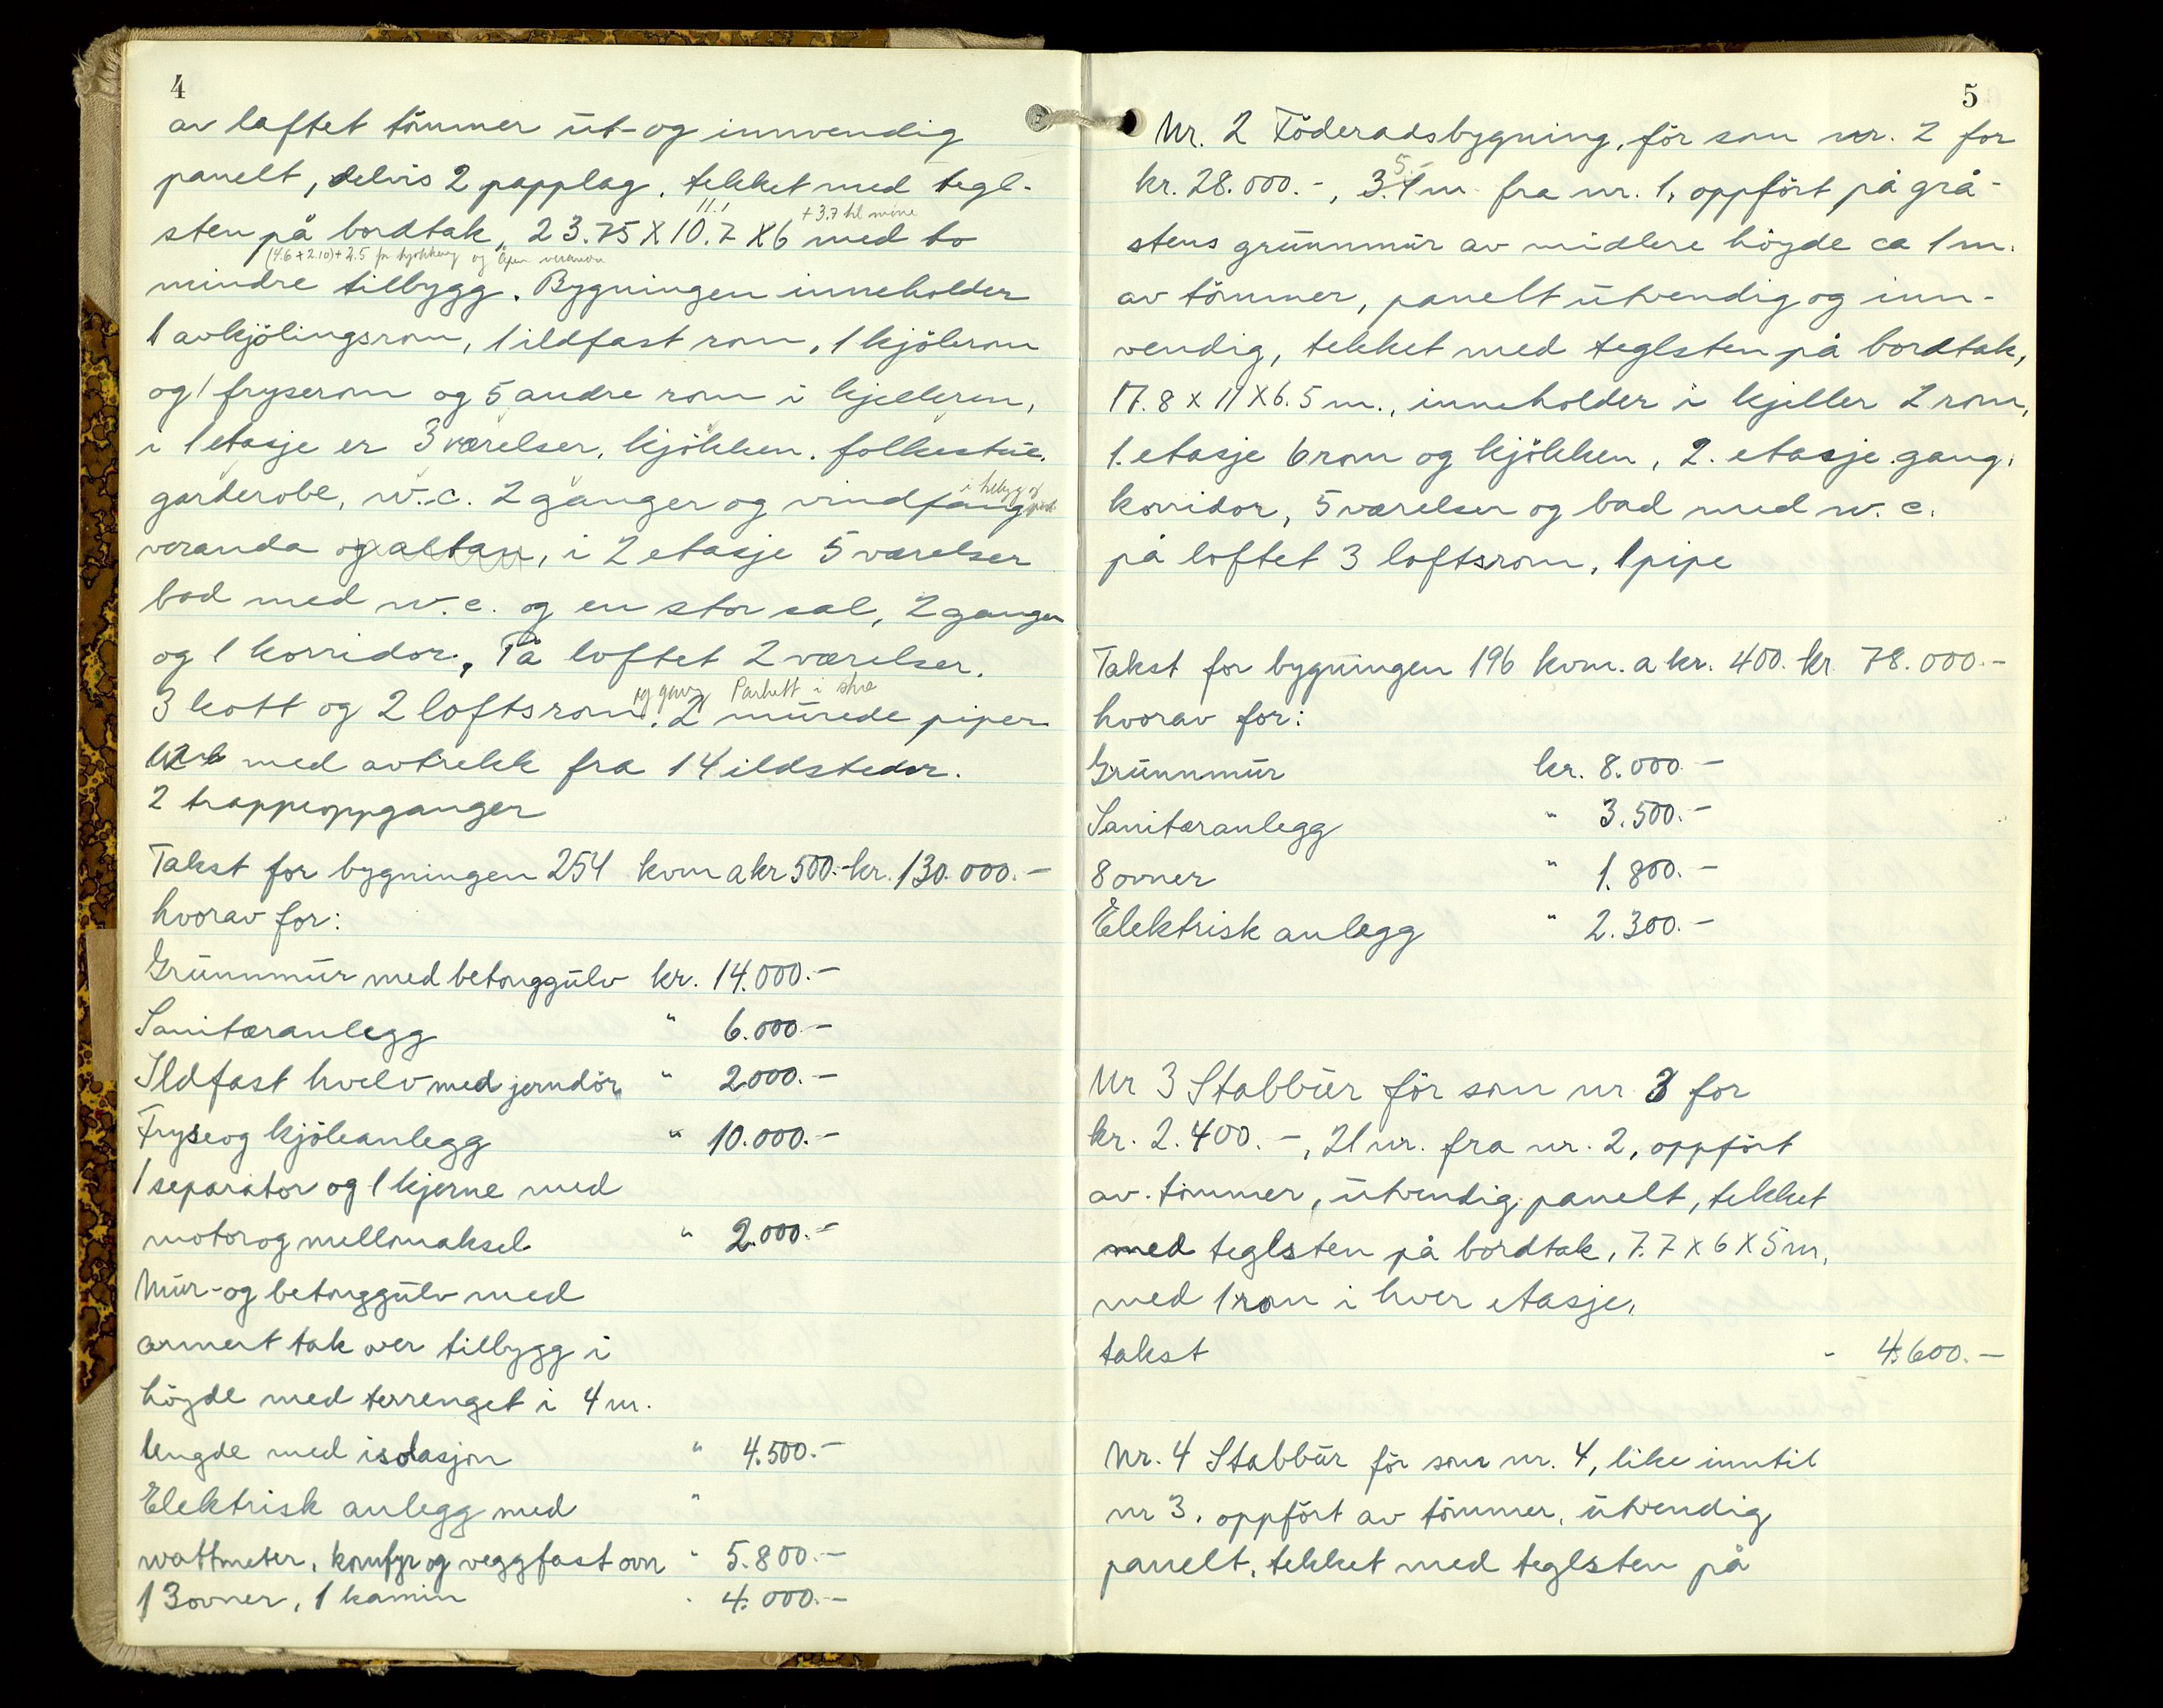 4
av laftet tömmer ut- og innvendig
panelt, delvis 2 papplag. tekket med tegl-
11.1 + 3.7 til møne
sten på bordtak, 23.75 X 10.7 X 6 med to
(4.6 + 2.10) + 2.5 og åpen veranda
mindre tilbygg. Bygningen inneholder
1 avkjölingsrom, 1 ildfast rom, 1 kjölerom
og 1 fryserom og 5 andre rom i kjelleren,
i 1 etasje er 3 værelser, kjökken. folkestue,
i tilbygg og
garderobe, w.c. 2 ganger og vindfang
veranda og altan, i 2 etasje 5 værelser
bad med w.c. og en stor sal, 2 ganger
og 1 korridor, På loftet 2 værelser,
og gang Parkett i stue
3 kott og 2 loftsrom. 2 murede piper
med avtrekk fra 14 ildsteder.
2 trappeoppganger
Takst for bygningen 254 kvm a kr 500.- kr. 130.000.-
hvorav for:
Grunnmur med betonggulv kr. 14.000.-
Sanitæranlegg " 6.000.-
Ildfast hvelv med jerndör, " 2000.-
Fryse og kjöleanlegg " 10.000.-
1 separator og 1 kjerne med
motor og mellomaksel " 2.000.-
Mur- og betonggulv med
armert tak over tilbygg i
höyde med terrenget i 4 m.
lengde med isolasjon " 4.500.-
Elektrisk anlegg med "
wattmeter, komfyr og veggfast ovn " 5.800.-
13 ovner, 1 kamin " 4.000.-
5
Nr. 2 Föderadsbygning, för som nr. 2 for
5.-
kr. 28.000.-, 3.1 m fra nr. 1, oppfört på grå-
stens grunnmur av midlere höyde ca 1 m.
av tömmer, panelt utvendig og inn-
vendig, tekket med teglsten på bordtak,
17.8 x 11 X 6.5 m., inneholder i kjeller 2 rom,
1. etasje 6 rom og kjökken, 2. etasje gang,
korridor, 5 værelser og bad med w.c.
på loftet 3 loftsrom, 1 pipe
Takst for bygningen 196 kvm. a kr. 400. kr 78.000.-
hvorav for:
Grunnmur kr. 8.000.-
Sanitæranlegg " 3.500.-
8 ovner " 1.800.-
Elektrisk anlegg " 2.300.-
Nr 3 Stabbur för som nr 3 for
kr. 2.400.-, 21 m. fra nr. 2, oppfört
av tömmer, utvendig panelt, tekket
med teglsten på bordtak, 7.7 x 6 X 5 m,
med 1 rom i hver etasje,
takst " 4.600.-
Nr. 4 Stabbur för som nr. 4, like inntil
nr 3, oppfört av tömmer, utvendig
panelt, tekket med teglsten på